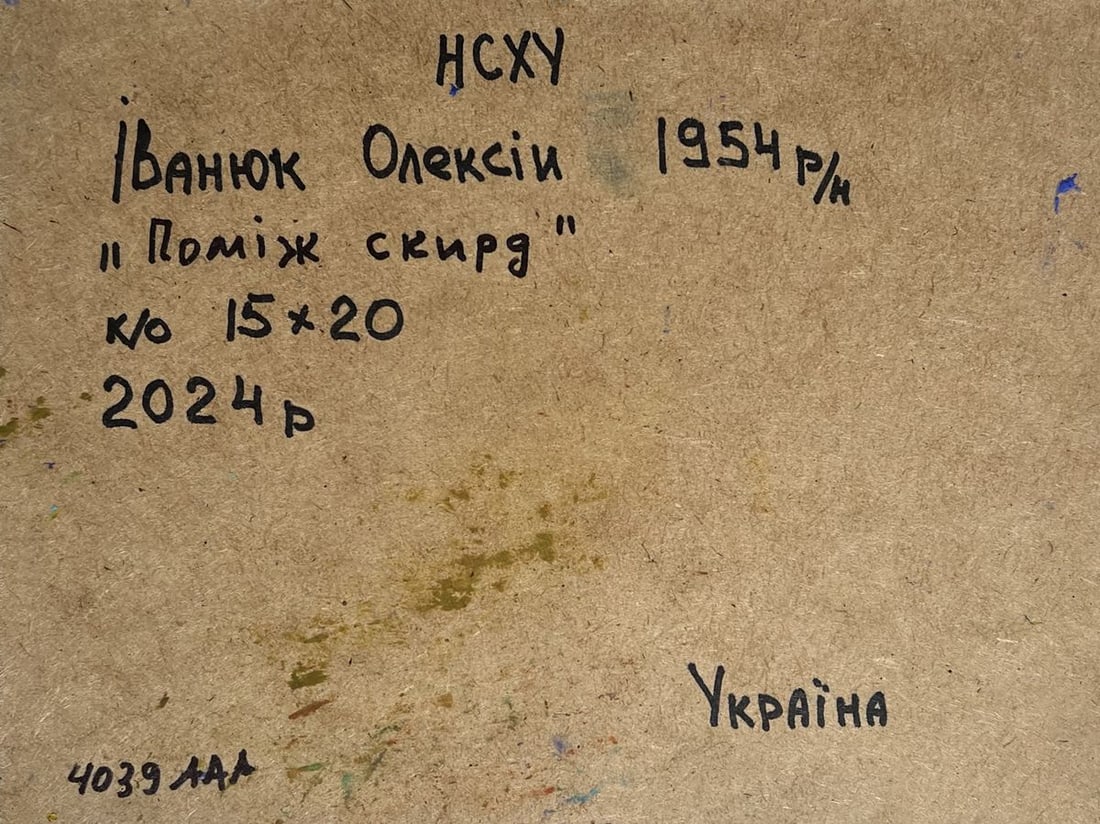 НСХУ
Іванюк Олексіи 1954 р/н
„Поміж скирд"
к/о 15×20
2024 р
Україна
4039 ААА